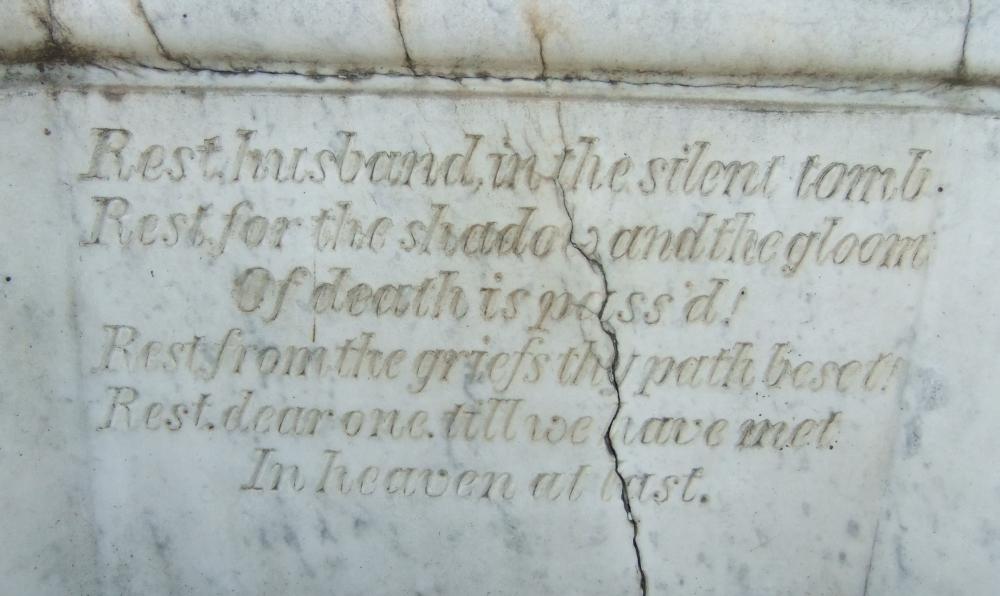 Rest, husband, in the silent tomb
Rest for the shadow and the gloom
Of death is pass'd!
Rest from the griefs thy path beset!
Rest, dear one, till we have met
In heaven at last.